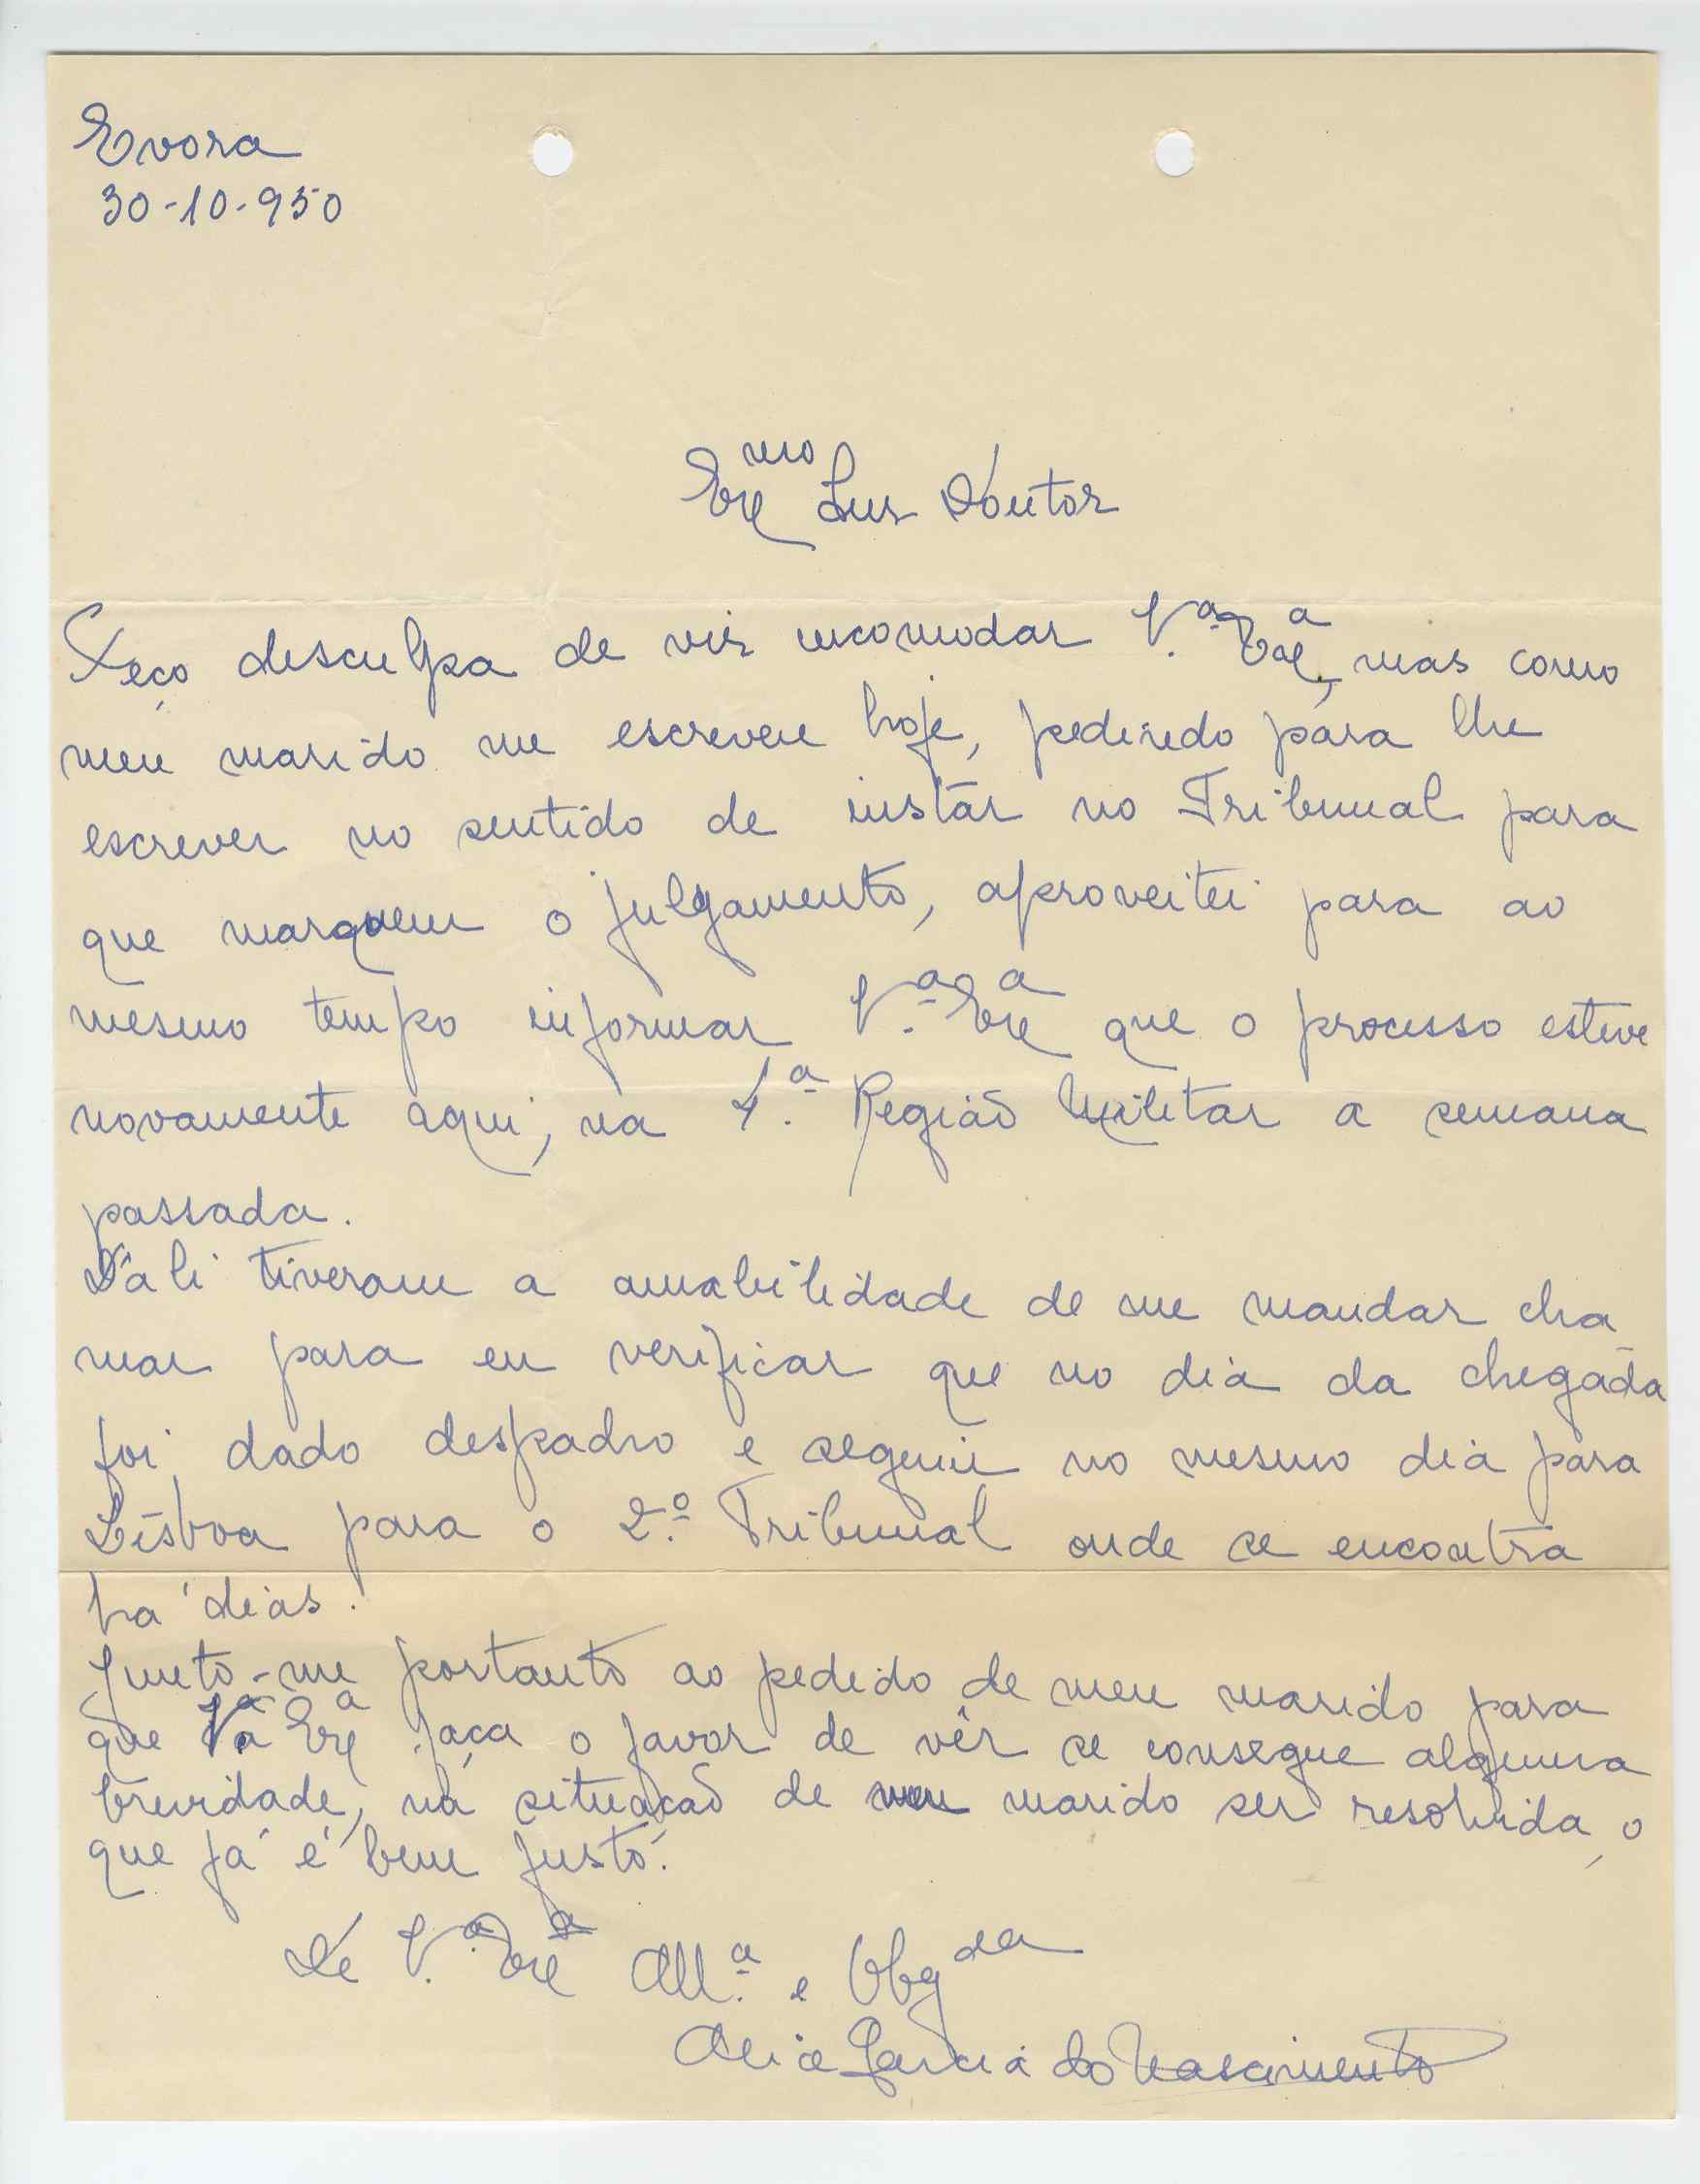 Evora
30-10-950
Exmo Snr Doutor
Peço desculpa de vir incomodar V.ª Exª, mas como
meu marido me escreveu hoje, pedindo para lhe
escrever no sentido de instar no Tribunal para
que marquem o julgamento, aproveitei para ao
mesmo tempo informar V.ª Exª que o processo esteve
novamente aqui, na 4.ª Região Militar a semana
passada.
Dáli tiveram a amabilidade de me mandar cha
mar para eu verificar que no dia da chegada
foi dado despacho e seguiu no mesmo dia para
Lisboa para o 2.º Tribunal onde se encontra
há dias.
Junto-me portanto ao pedido de meu marido para
que Vª Exª faça o favor de vêr se consegue alguma
brevidade, na situação de meu marido ser resolvida, o
que já é bem justo.
De V.ª Exª Att.ª e Obgda
Alice Garcia do Nascimento